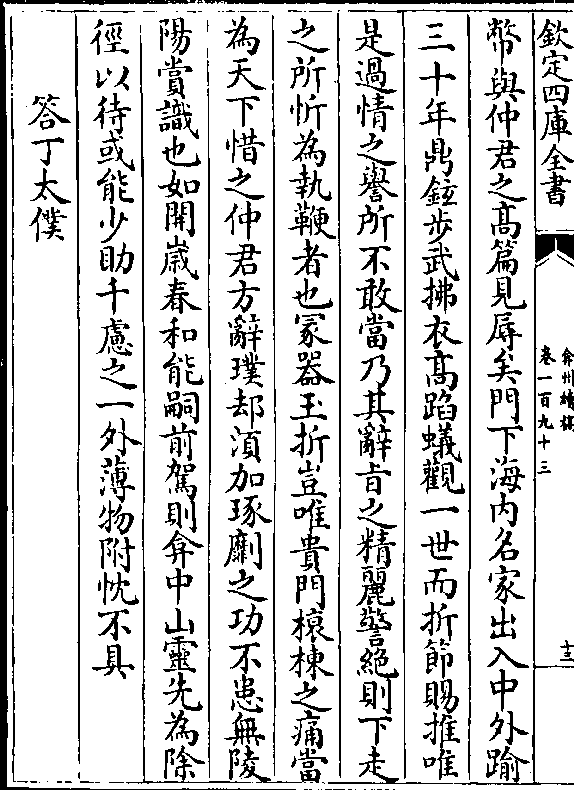 欽定四庫全書
弇州續稿
卷一百九十三
十三
幣與仲君之高篇見辱矣門下海内名家出入中外踰
三十年鼎鉉步武拂衣高蹈蟻觀一世而折節賜推唯
是過情之譽所不敢當乃其辭旨之精麗警絶則下走
之所忻為執鞭者也冢器玉折豈唯貴門榱棟之痛當
為天下惜之仲君方辭璞却須加琢劘之功不患無陵
陽賞識也如開歳春和能嗣前駕則弇中山靈先為除
徑以待或能少助千慮之一外薄物附忱不具
答丁太僕